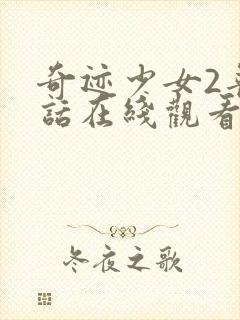 奇迹少女2
話在綫觀看
冬夜之歌